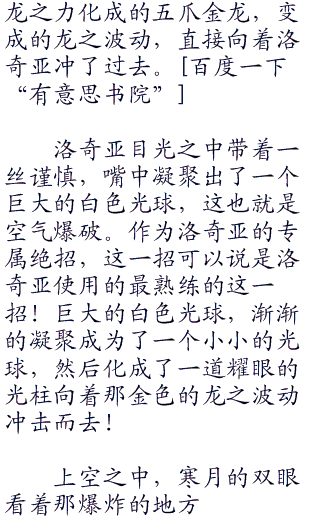 龙之力化成的五爪金龙，变
成的龙之波动，直接向着洛
奇亚冲了过去。[百度一下
“有意思书院”]
洛奇亚目光之中带着一
丝谨慎，嘴中凝聚出了一个
巨大的白色光球，这也就是
空气爆破。作为洛奇亚的专
属绝招，这一招可以说是洛
奇亚使用的最熟练的这一
招！巨大的白色光球，渐渐
的凝聚成为了一个小小的光
球，然后化成了一道耀眼的
光柱向着那金色的龙之波动
冲击而去！
上空之中，寒月的双眼
看着那爆炸的地方